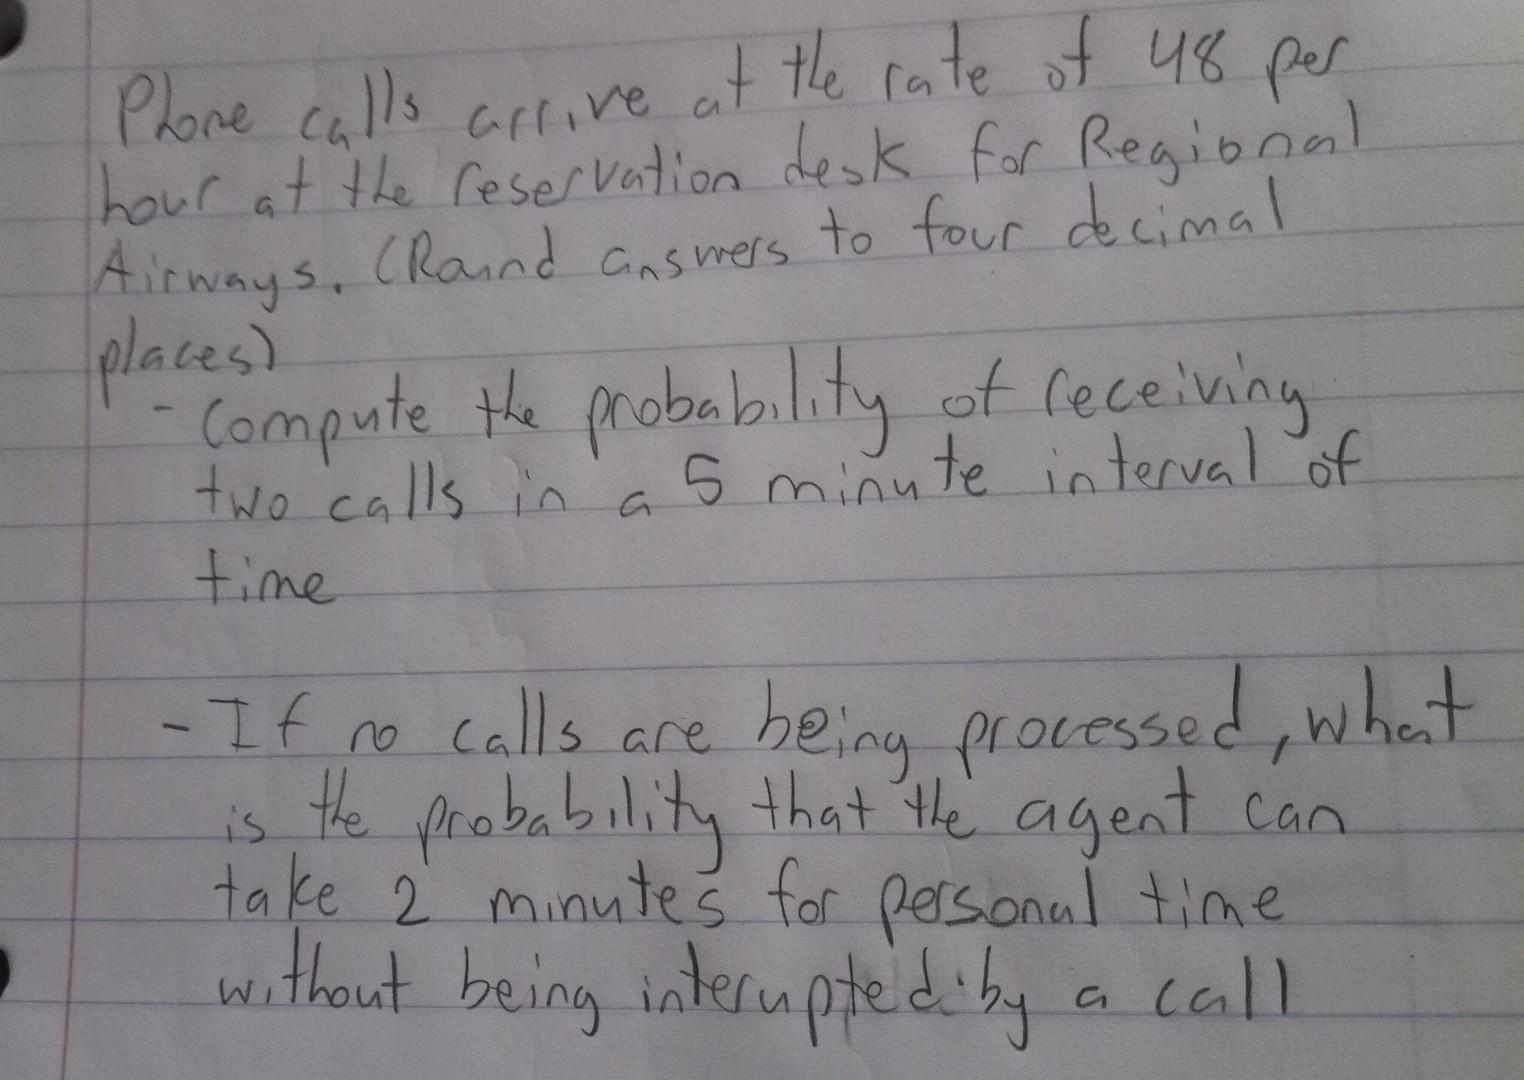 Phone calls arrive at the rate of 48 per
hour at the reservation desk for Regional
Airways. (Round answers to four decimal
places)
- Compute the probability of receiving
two calls in a 5 minute interval of
time
- If no calls are being processed, what
is the probability that the agent can
take 2 minutes for personal time
without being interupted by a call